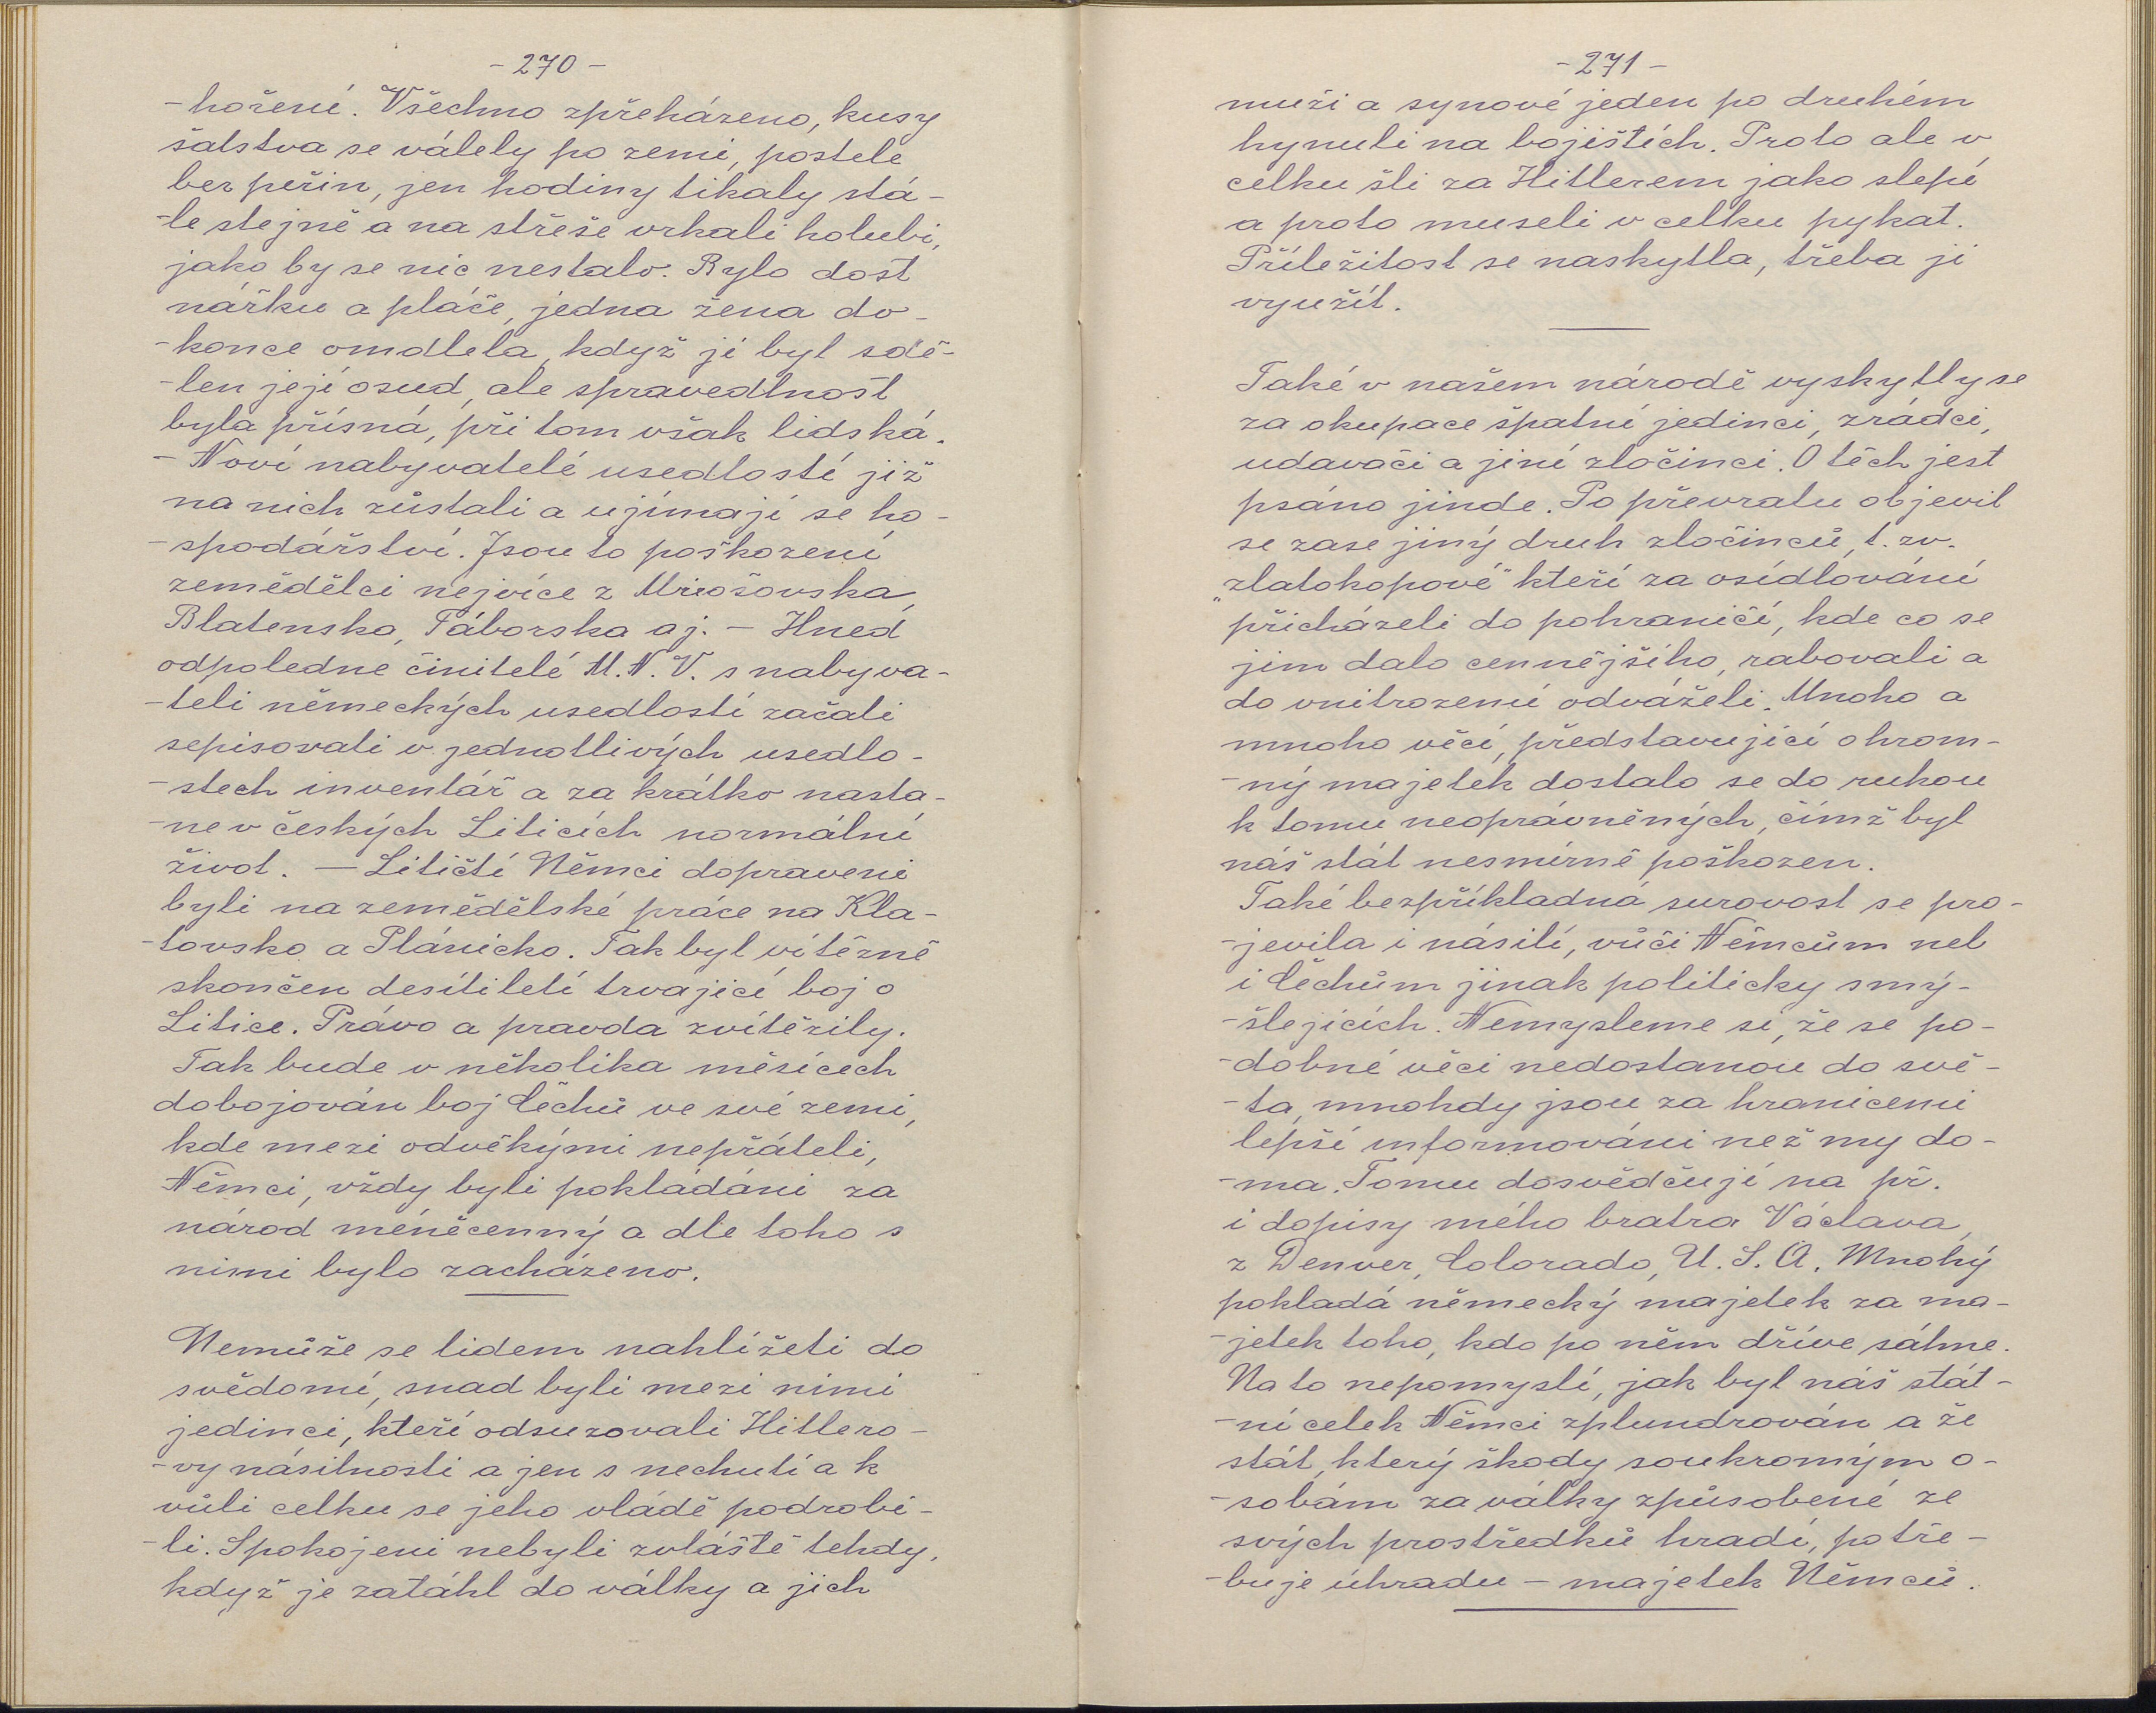 - 270 -
- hoření. Všechno zpřeházeno, kusy
šatstva se válely po zemi, postele
bez peřin, jen hodiny tikaly stá-
-le stejně a na střeše vrkali holubi,
jako by se nic nestalo. Bylo dost
nářku a pláče, jedna žena do-
-konce omdlela, když jí byl sdě-
-len její osud, ale spravedlnost
byla přísná, při tom však lidská.
- Noví nabyvatelé usedlostí již
na nich zůstali a ujímají se ho-
-spodářství. Jsou to poškození
zemědělci nejvíce z Mirošovska,
Blatenska, Táborska aj. - Hned
odpoledne činitelé M.N.V. s nabyva-
-teli německých usedlostí začali
sepisovati v jednotlivých usedlo-
-stech inventář a za krátko nasta-
-ne v českých Liticích normální
život. - Litičtí Němci dopraveni
byli na zemědělské práce na Kla-
-tovsko a Plánicko. Tak byl vítězně
skončen desítiletí trvající boj o
Litice. Právo a pravda zvítězily.
Tak bude v několika měsících
dobojován boj Čechů ve své zemi,
kde mezi odvěkými nepřáteli,
Němci, vždy byli pokládáni za
národ méněcenný a dle toho s
nimi bylo zacházeno.
Nemůže se lidem nahlížeti do
svědomí, snad byli mezi nimi
jedinci, kteří odsuzovali Hitlero-
-vy násilnosti a jen s nechutí a k
vůli celku se jeho vládě podrobi-
-li. Spokojeni nebyli zvláště tehdy,
když je zatáhl do války a jich
- 271 -
muži a synové jeden po druhém
hynuli na bojištích. Proto ale v
celku šli za Hitlerem jako slepí
a proto museli v celku pykat.
Příležitost se naskytla, třeba ji
využít.
Také v našem národě vyskytly se
za okupace špatní jedinci, zrádci,
udavači a jiní zločinci. O těch jest
psáno jinde. Po převratu objevil
se zase jiný druh zločinců, t. zv.
„zlatokopové" kteří za osídlování
přicházeli do pohraničí, kde co se
jim dalo cennějšího, rabovali a
do vnitrozemí odváželi. Mnoho a
mnoho věcí, představující ohrom-
-ný majetek dostalo se do rukou
k tomu neoprávněných, čímž byl
náš stát nesmírně poškozen.
Také bezpříkladná surovost se pro-
-jevila i násilí, vůči Němcům neb
i Čechům jinak politicky smý-
-šlejících. Nemysleme si, že se po-
-dobné věci nedostanou do svě-
-ta, mnohdy jsou za hranicemi
lépší informováni než my do-
-ma. Tomu dosvědčují na př.
i dopisy mého bratra Václava,
z Denver, Colorado, U. S. A. Mnohý
pokladá německý majetek za ma-
-jetek toho, kdo po něm dříve sáhne.
Na to nepomyslí, jak byl náš stát-
-ní celek Němci zplundrován a že
stát, který škody soukromým o-
-sobám za války způsobené ze
svých prostředků hradí, potře-
-buje úhradu - majetek Němců.